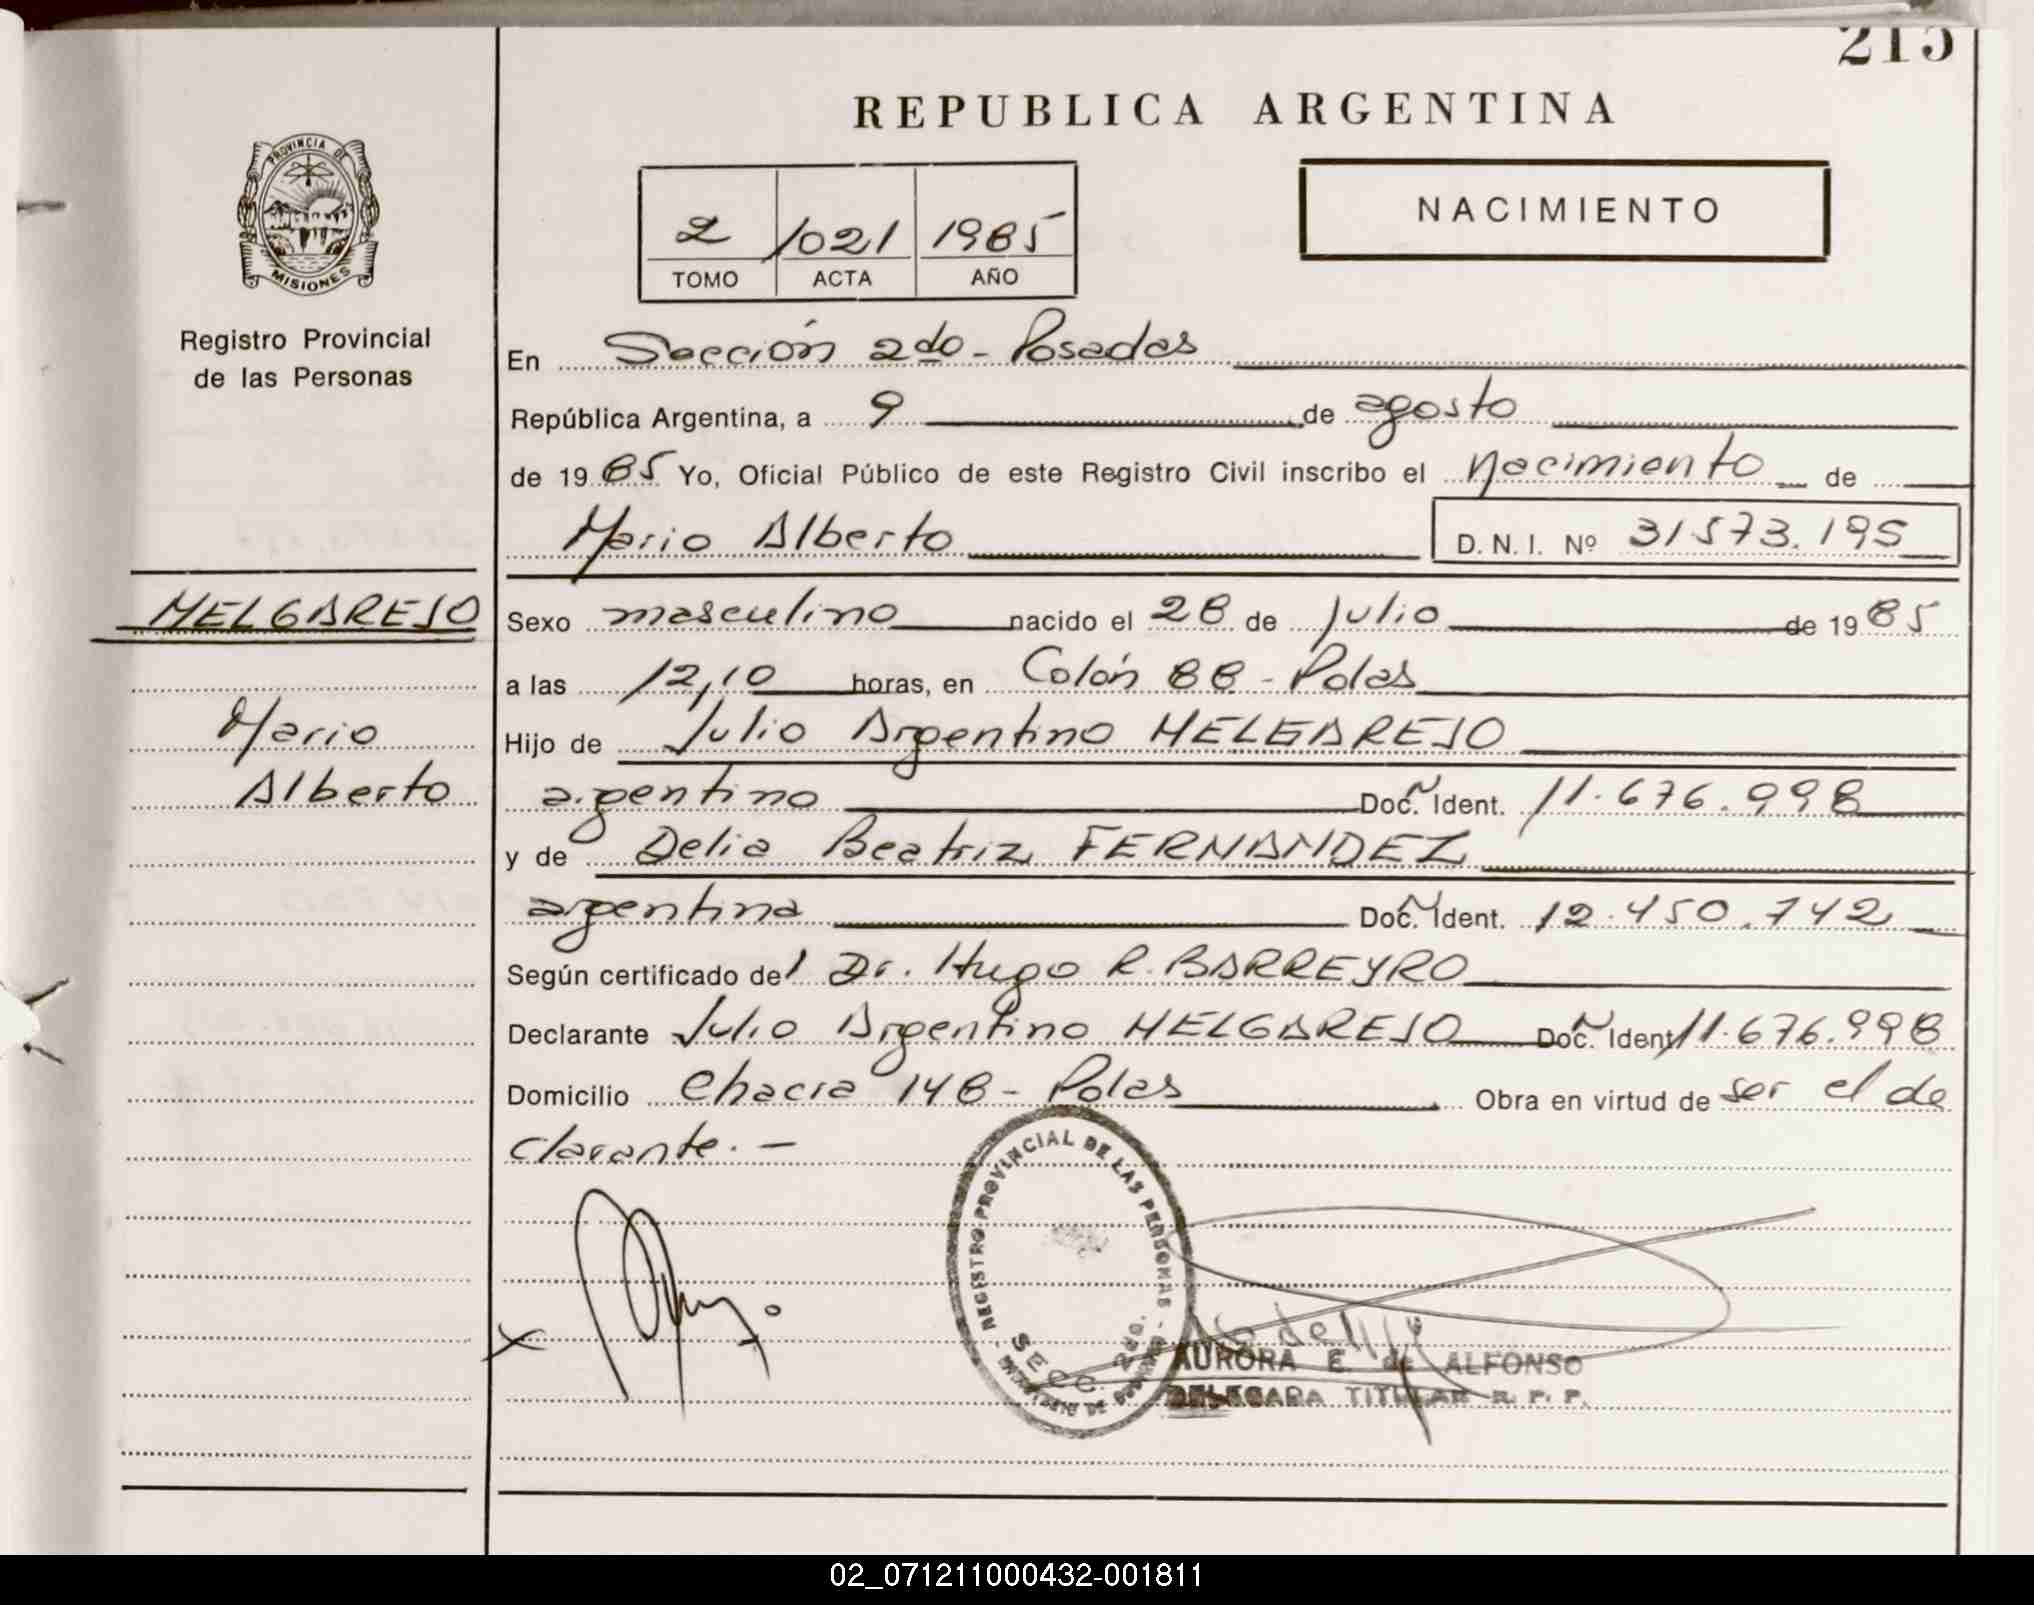 215
REPUBLICA ARGENTINA
PROVINCIA DE
MISIONES
Registro Provincial
de las Personas
2 1021 1985
TOMO ACTA AÑO
NACIMIENTO
En Sección 2do - Posadas
República Argentina, a 9 de agosto
de 1985 Yo, Oficial Público de este Registro Civil inscribo el nacimiento de
Mario Alberto D.N.I. Nº 31573.195
MELGAREJO
Mario
Alberto
Sexo masculino nacido el 28 de Julio de 1985
a las 12,10 horas, en Colón 88 - Pdas
Hijo de Julio Argentino MELGAREJO
argentino Doc. Ident. 11.676.998
y de Delia Beatriz FERNANDEZ
argentina Doc. Ident. 12.450.742
Según certificado del Dr. Hugo R. BARREYRO
Declarante Julio Argentino MELGAREJO Doc. Ident 11.676.998
Domicilio Chacra 148 - Pdas Obra en virtud de ser el de
clarante. -
REGISTRO PROVINCIAL DE LAS PERSONAS
SECC. 2DO.
X
AURORA E. de ALFONSO
DELEGADA TITULAR R. P. P.
02_071211000432-001811